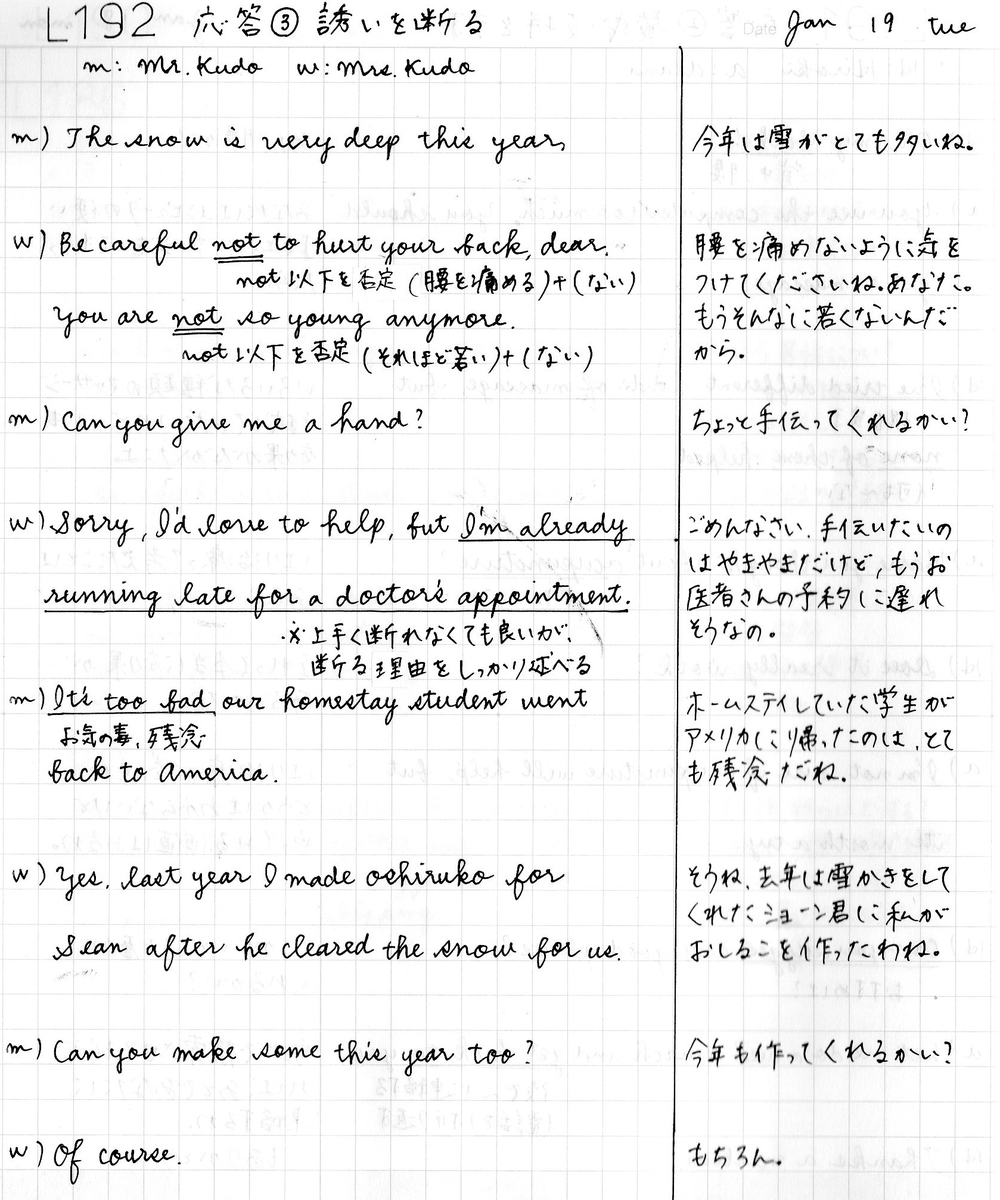 L192 応答③ 誘いを断る Date Jan 19 tue
m: Mr. Kudo w: Mrs. Kudo
m) The snow is very deep this year,
今年は雪がとても多いね。
w) Be careful not to hurt your back, dear.
not 以下を否定 (腰を痛める)+(ない)
You are not so young anymore.
not 以下を否定 (それほど若い)+(ない)
腰を痛めないように気を
つけてくださいね。あなた。
もうそんなに若くないんだ
から。
m) Can you give me a hand?
ちょっと手伝ってくれるかい?
w) Sorry, I'd love to help, but I'm already
running late for a doctor's appointment.
※上手く断れなくても良いが、
断る理由をしっかり述べる
ごめんなさい、手伝いたいの
はやまやまだけど、もうお
医者さんの予約に遅れ
そうなの。
m) It's too bad our homestay student went
お気の毒、残念
back to America.
ホームステイしていた学生が
アメリカに帰ったのは、とて
も残念だね。
w) Yes, last year I made oshiruko for
Sean after he cleared the snow for us.
そうね、去年は雪かきをして
くれたショーン君に私が
おしるこを作ったわね。
m) Can you make some this year too?
今年も作ってくれるかい?
w) Of course.
もちろん。